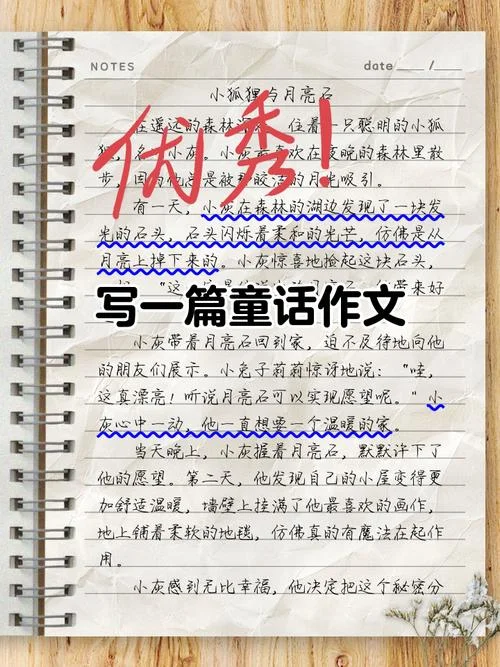 NOTES
date ____ / ____
小狐狸与月亮石
在遥远的森林深 住着一只聪明的小狐
狸, 名 小灰。小灰最喜欢在夜晚的森林里散
步, 因为他总是被那皎洁的月光吸引。
优秀!
有一天, 小灰在森林的湖边发现了一块发
光的石头, 石头闪烁着柔和的光芒, 仿佛是从
月亮上掉下来的。小灰惊喜地捡起这块石头,
带来好
写一篇童话作文
小灰带着月亮石回到家, 迫不及待地向他
的朋友们展示。小兔子莉莉惊讶地说: “哇,
这真漂亮! 听说月亮石可以实现愿望呢。”小
灰心中一动, 他一直想要一个温暖的家。
当天晚上, 小灰握着月亮石, 默默许下了
他的愿望。第二天, 他发现自己的小屋变得更
加舒适温暖, 墙壁上挂满了他最喜欢的画作,
地上铺着柔软的地毯, 仿佛真的有魔法在起作
用。
小灰感到无比幸福, 他决定把这个秘密分